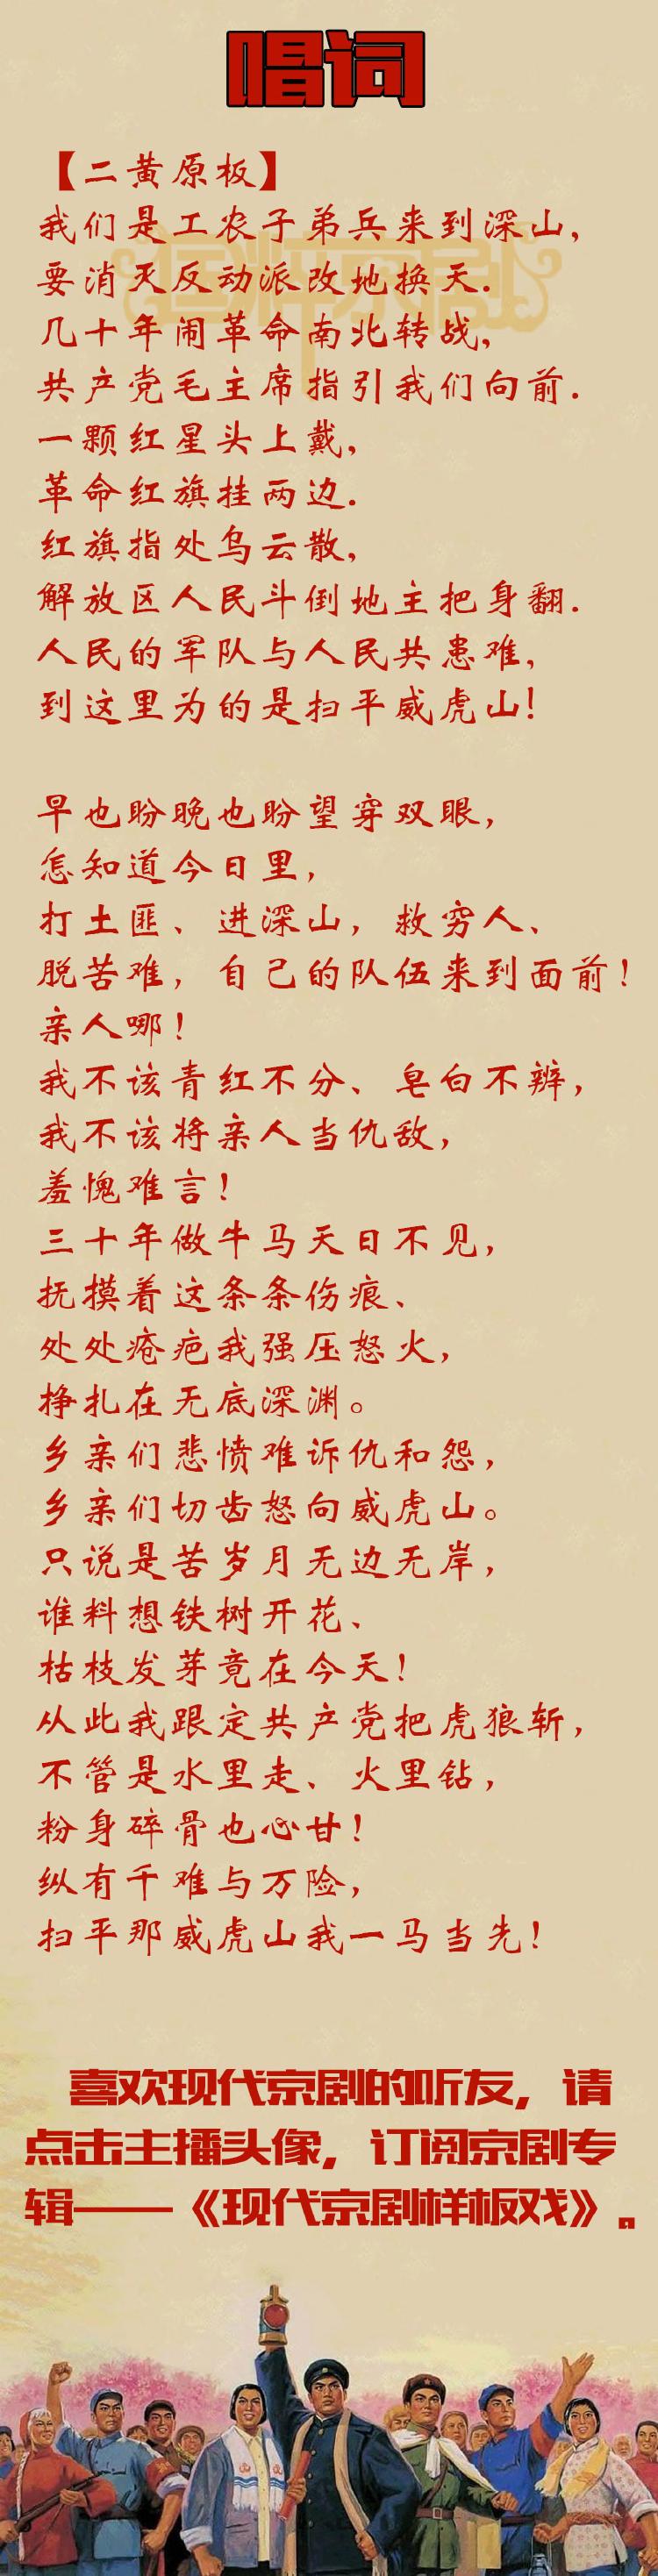 唱词
【二黄原板】
我们是工农子弟兵来到深山,
要消灭反动派改地换天.
几十年闹革命南北转战,
共产党毛主席指引我们向前.
一颗红星头上戴,
革命红旗挂两边.
红旗指处乌云散,
解放区人民斗倒地主把身翻.
人民的军队与人民共患难,
到这里为的是扫平威虎山!
早也盼晚也盼望穿双眼，
怎知道今日里，
打土匪、进深山，救穷人、
脱苦难，自己的队伍来到面前！
亲人哪！
我不该青红不分、皂白不辨，
我不该将亲人当仇敌，
羞愧难言！
三十年做牛马天日不见，
抚摸着这条条伤痕、
处处疮疤我强压怒火，
挣扎在无底深渊。
乡亲们悲愤难诉仇和怨，
乡亲们切齿怒向威虎山。
只说是苦岁月无边无岸，
谁料想铁树开花、
枯枝发芽竟在今天！
从此我跟定共产党把虎狼斩，
不管是水里走、火里钻，
粉身碎骨也心甘！
纵有千难与万险，
扫平那威虎山我一马当先！
喜欢现代京剧的听友，请
点击主播头像，订阅京剧专
辑——《现代京剧样板戏》。
国粹京剧